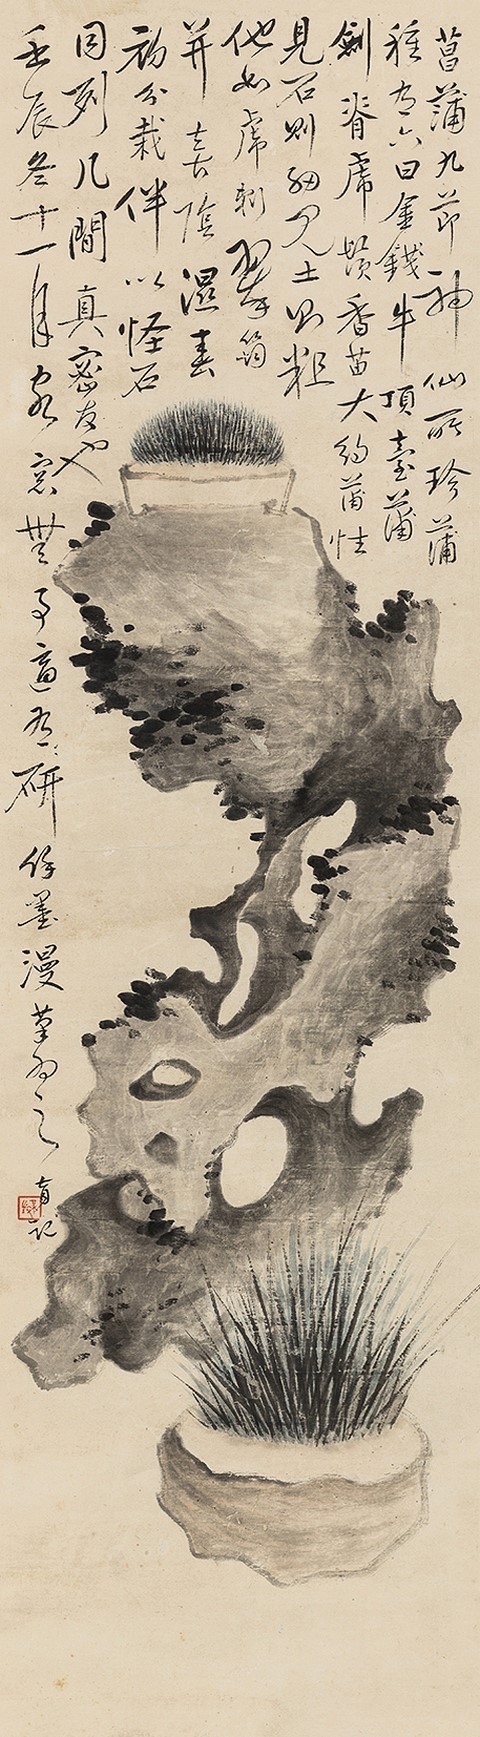 菖蒲九節神仙所珍蒲
種有六曰金錢牛頂臺蒲
劍脊虎鬚香苗大約蒲性
見石則細見土則粗
他如虎刺翠筠
并喜陰濕春
初分栽伴以怪石
同列几間真密友也
壬辰冬十一月客窓無事適有研余墨漫筆為之
記